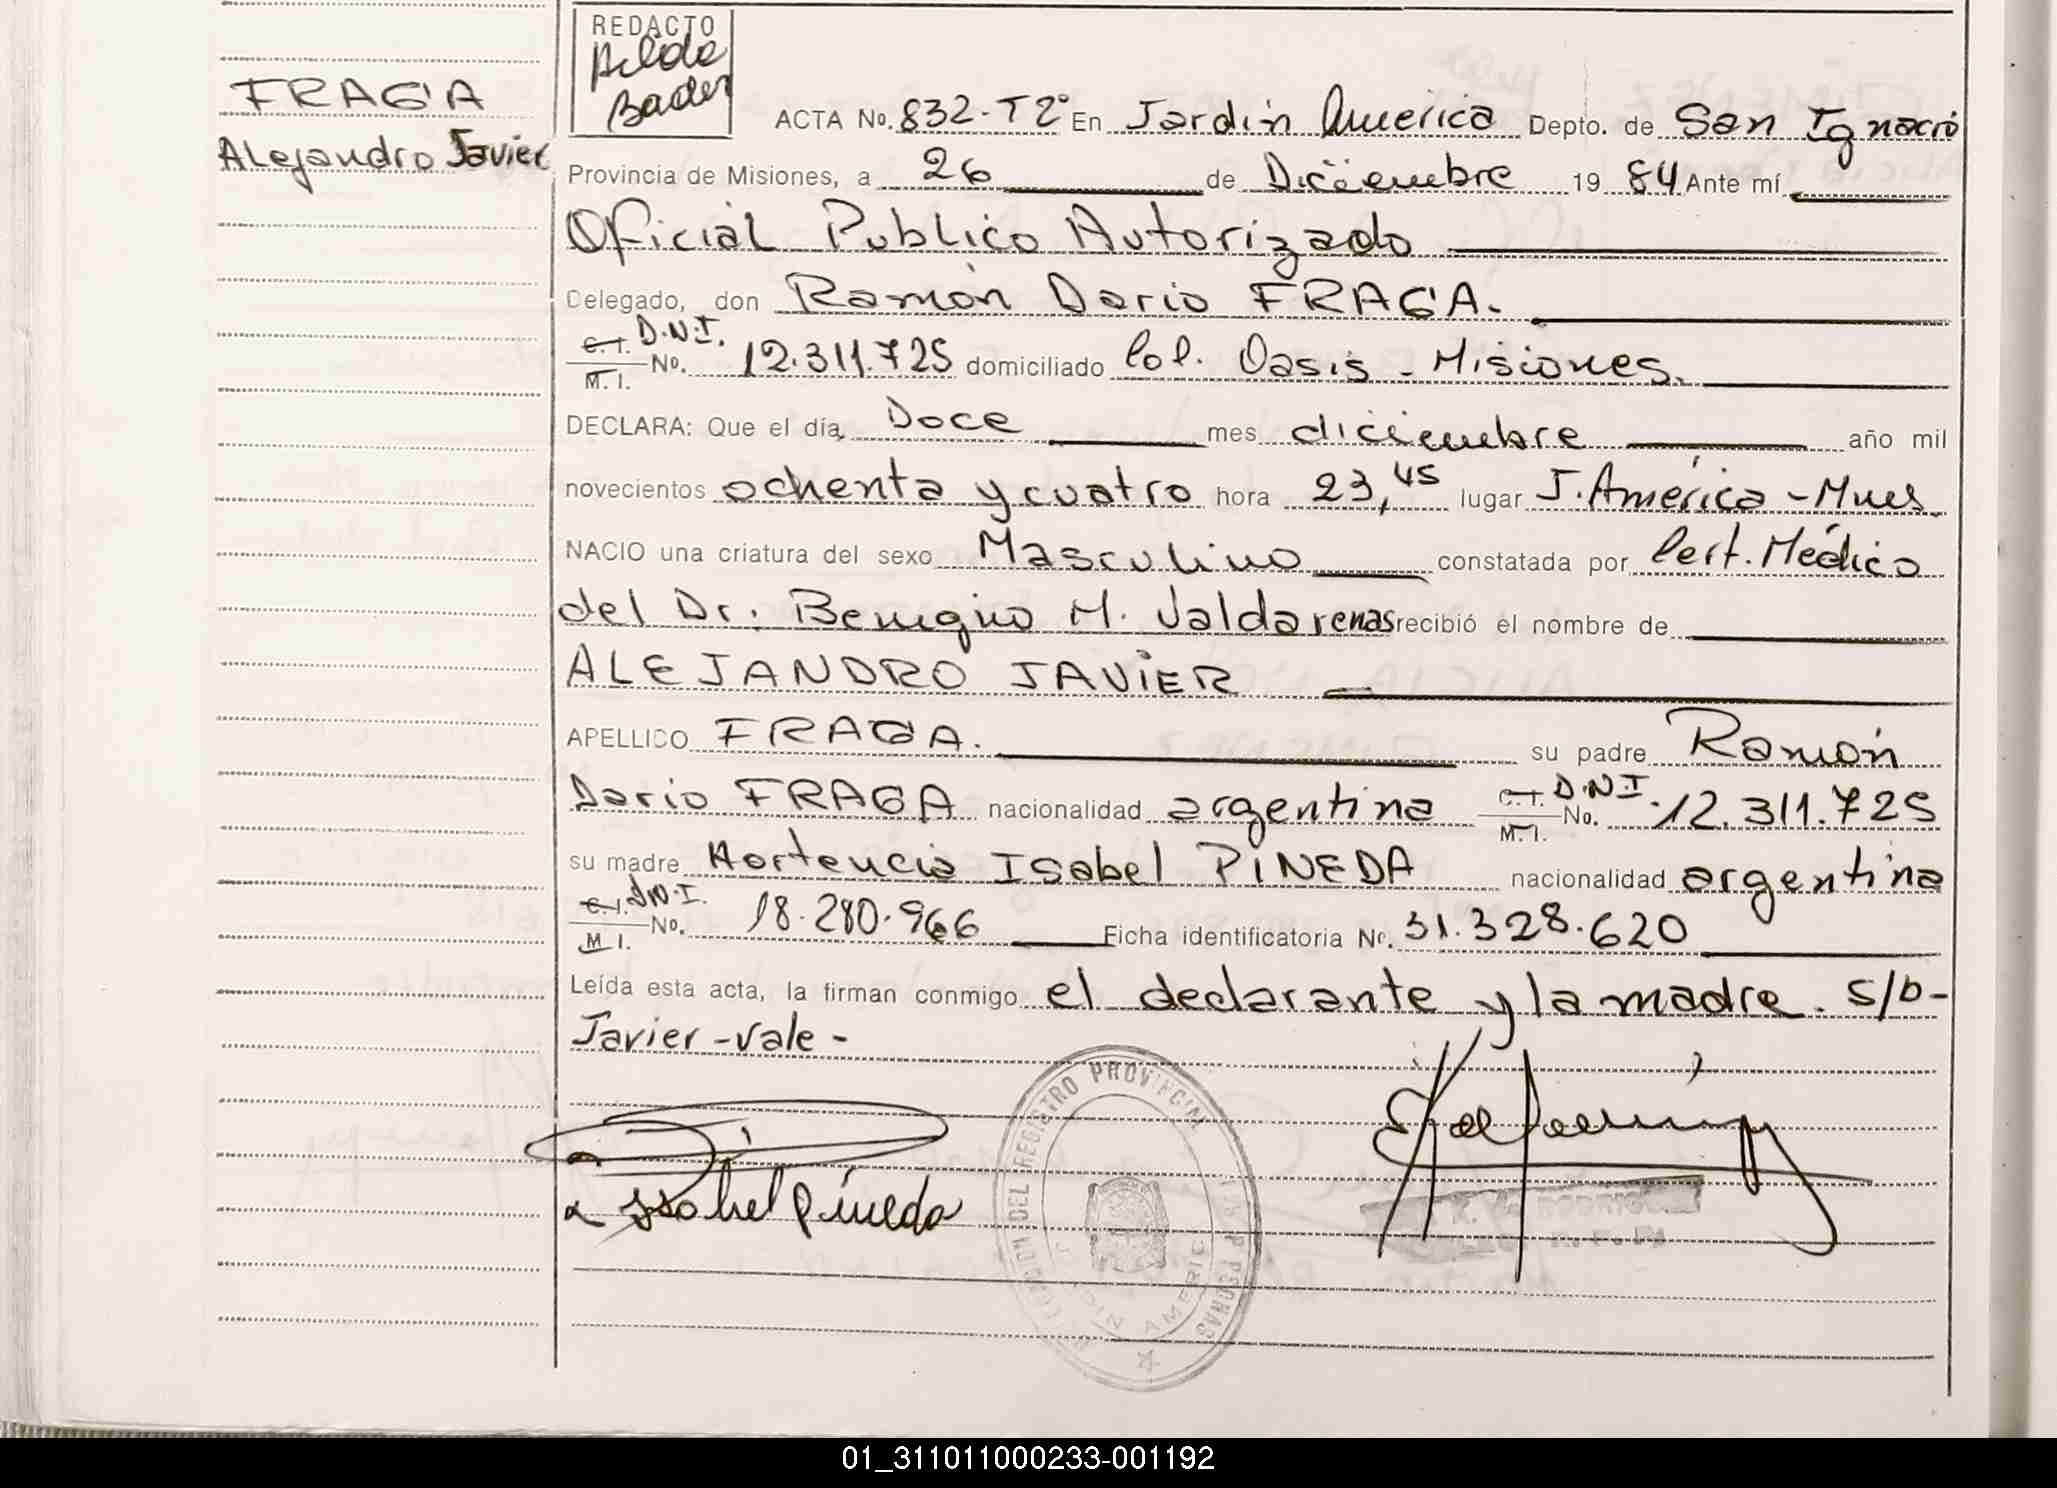 REDACTO
Bader
FRAGA
Alejandro Javier
ACTA No. 832-T2° En Jardín América Depto. de San Ignacio
Provincia de Misiones, a 26 de Diciembre 19 84 Ante mí
Oficial Publico Autorizado
Delegado, don Ramón Dario FRAGA.
C.I. D.N.I. M.I. No. 12.311.725 domiciliado Col. Oasis - Misiones.
DECLARA: Que el día Doce mes diciembre año mil
novecientos ochenta y cuatro hora 23,45 lugar J. América - Mnes.
NACIO una criatura del sexo Masculino constatada por Cert. Médico
del Dr. Benigno M. Valdarenas recibió el nombre de
ALEJANDRO JAVIER
APELLIDO FRAGA. su padre Ramón
Dario FRAGA nacionalidad argentina C.I. D.N.I. M.I. No. 12.311.725
su madre Hortencia Isabel PINEDA nacionalidad argentina
C.I. D.N.I. M.I. No. 18.280.966 Ficha identificatoria No. 31.328.620
Leída esta acta, la firman conmigo el declarante y la madre. S/b-
Javier - vale -
Isabel Pineda
DEL REGISTRO PROVINCIAL
JARDIN AMERICA
01_311011000233-001192